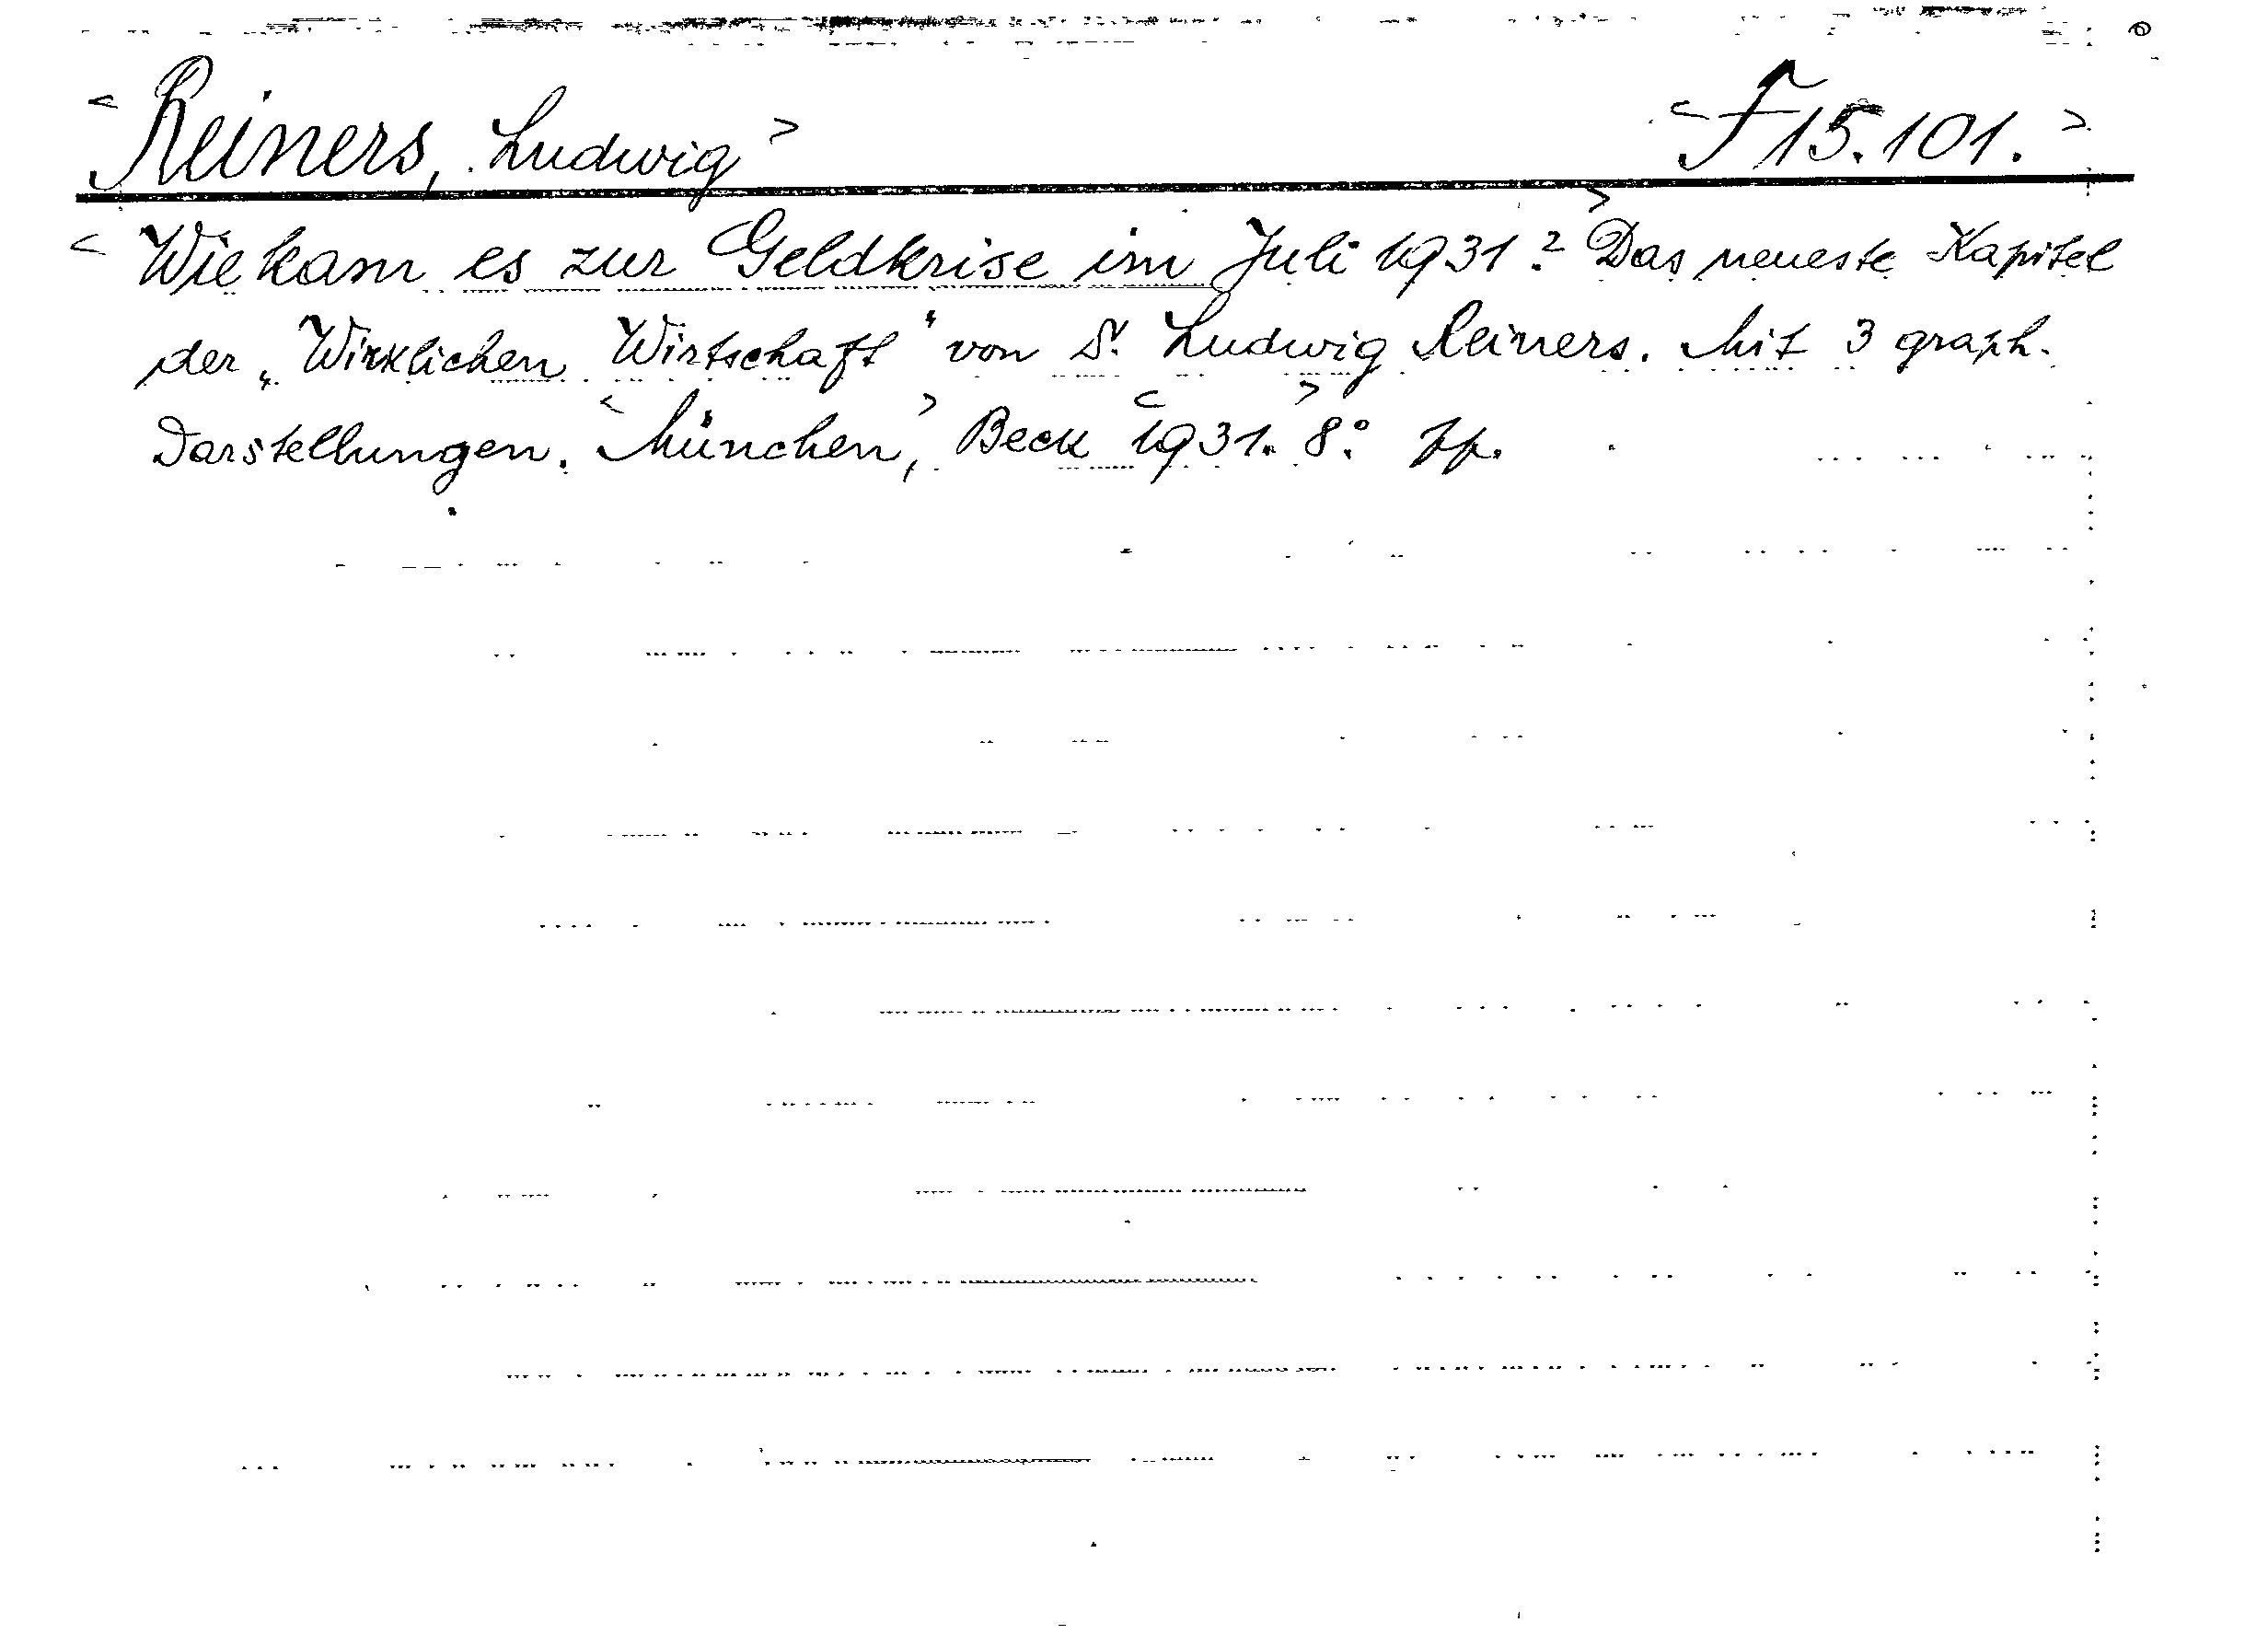 <Reiners, Ludwig> <F 15.101.>
<Wie kam es zur Geldkrise im Juli 1931?> Das neueste Kapitel
der „Wirklichen Wirtschaft" von Dr. Ludwig Reiners. Mit 3 graph.
Darstellungen. <München>, Beck <1931.> 8°.